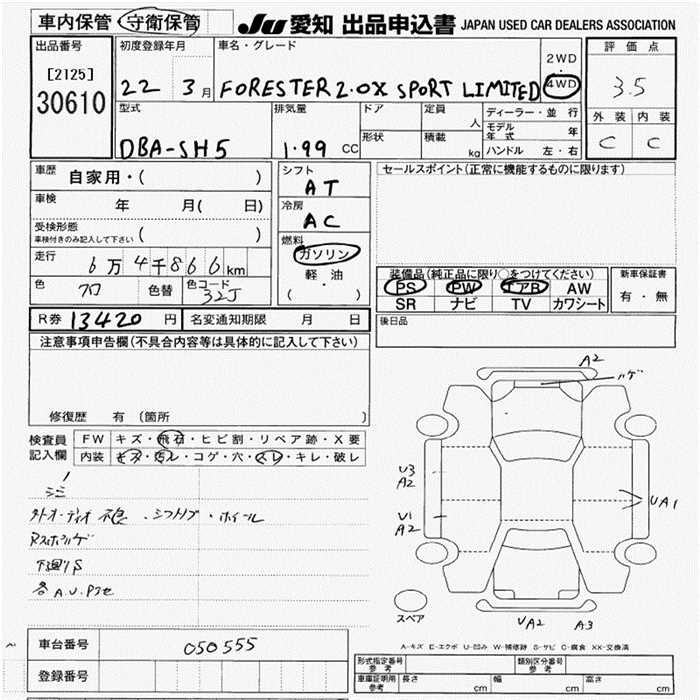 車内保管 守衛保管
JU 愛知 出品申込書 JAPAN USED CAR DEALERS ASSOCIATION
出品番号
[2125]
30610
初度登録年月
22 3月
車名・グレード
FORESTER 2.0X SPORT LIMITED
2WD
4WD
評価点
3.5
外装 内装
C C
型式
DBA-SH5
排気量
1.99 CC
ドア
形状
定員
人
積載
kg
ディーラー・並行
モデル年式 年
ハンドル 左・右
車歴
自家用・( )
車検
年 月( 日)
受検形態
車検付きのみ記入して下さい ( )
走行
6万4千866km
色
クロ
色替
色コード
32J
シフト
AT
冷房
AC
燃料
ガソリン
軽油
( ・ )
セールスポイント(正常に機能するものに限ります)
装備品(純正品に限り○をつけてください)
PS PW エアB AW
SR ナビ TV カワシート
新車保証書
有・無
R券 13420 円
名変通知期限 月 日
後日品
注意事項申告欄(不具合内容等は具体的に記入して下さい)
修復歴 有 〔箇所 〕
検査員
記入欄
FW キズ・飛石・ヒビ割・リペア跡・X要
内装 キズ・汚レ・コゲ・穴・スレ・キレ・破レ
・シフトノブ・ホイール
下廻りS
各A.U.Pアセ
A2
U3
A2
U1
A2
UA1
UA2 A3
スペア
A-キズ E-エクボ U-凹み W-補修跡 S-サビ C-腐食 XX-交換済
車台番号 050555
登録番号
形式指定番号
参考
類別区分番号
参考
車庫証明用
参考
長さ cm
幅 cm
高さ cm